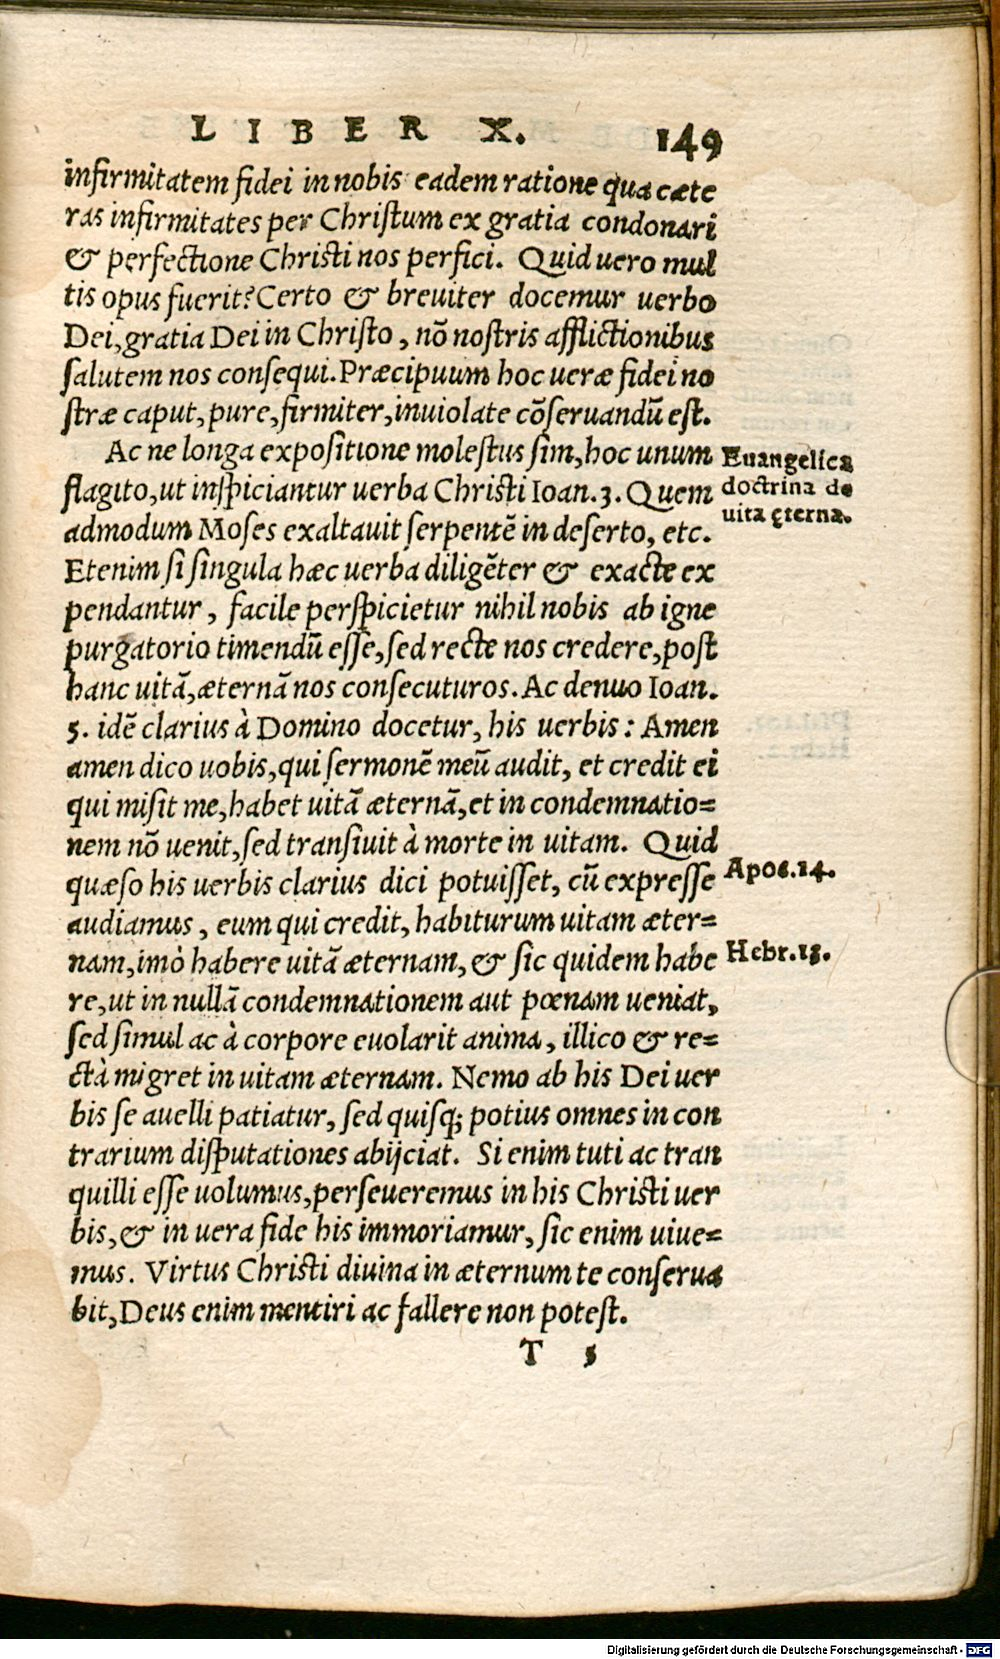 LIBER X. 149
infirmitatem fidei in nobis eadem ratione qua cæte
ras infirmitates per Chriſtum ex gratia condonari
& perfectione Chriſti nos perfici. Quid uero mul
tis opus fuerit? Certo & breuiter docemur uerbo
Dei, gratia Dei in Chriſto, nõ noſtris afflictionibus
ſalutem nos conſequi. Præcipuum hoc ueræ fidei no
ſtræ caput, pure, firmiter, inuiolate cõſeruandũ eſt.
Ac ne longa expoſitione moleſtus ſim, hoc unum
flagito, ut inſpiciantur uerba Chriſti Ioan. 3. Quem
admodum Moſes exaltauit ſerpentẽ in deſerto, etc.
Euangelica
doctrina de
uita ęterna.
Etenim ſi ſingula hæc uerba diligẽter & exacte ex
pendantur, facile perſpicietur nihil nobis ab igne
purgatorio timendũ eſſe, ſed recte nos credere, poſt
hanc uitã, æternã nos conſecuturos. Ac denuo Ioan.
5. idẽ clarius à Domino docetur, his uerbis: Amen
amen dico uobis, qui ſermonẽ meũ audit, et credit ei
qui miſit me, habet uitã æternã, et in condemnatio=
nem nõ uenit, ſed tranſiuit à morte in uitam. Quid
quæſo his uerbis clarius dici potuiſſet, cũ expreſſe
Apoc.14.
audiamus, eum qui credit, habiturum uitam æter=
nam, imò habere uitã æternam, & ſic quidem habe
Hebr.13.
re, ut in nullã condemnationem aut pœnam ueniat,
ſed ſimul ac à corpore euolarit anima, illico & re=
ctà migret in uitam æternam. Nemo ab his Dei uer
bis ſe auelli patiatur, ſed quiſq; potius omnes in con
trarium diſputationes abijciat. Si enim tuti ac tran
quilli eſſe uolumus, perſeueremus in his Chriſti uer
bis, & in uera fide his immoriamur, ſic enim uiue=
mus. Virtus Chriſti diuina in æternum te conſerua
bit, Deus enim mentiri ac fallere non poteſt.
T 5
Digitalisierung gefördert durch die Deutsche Forschungsgemeinschaft - DFG